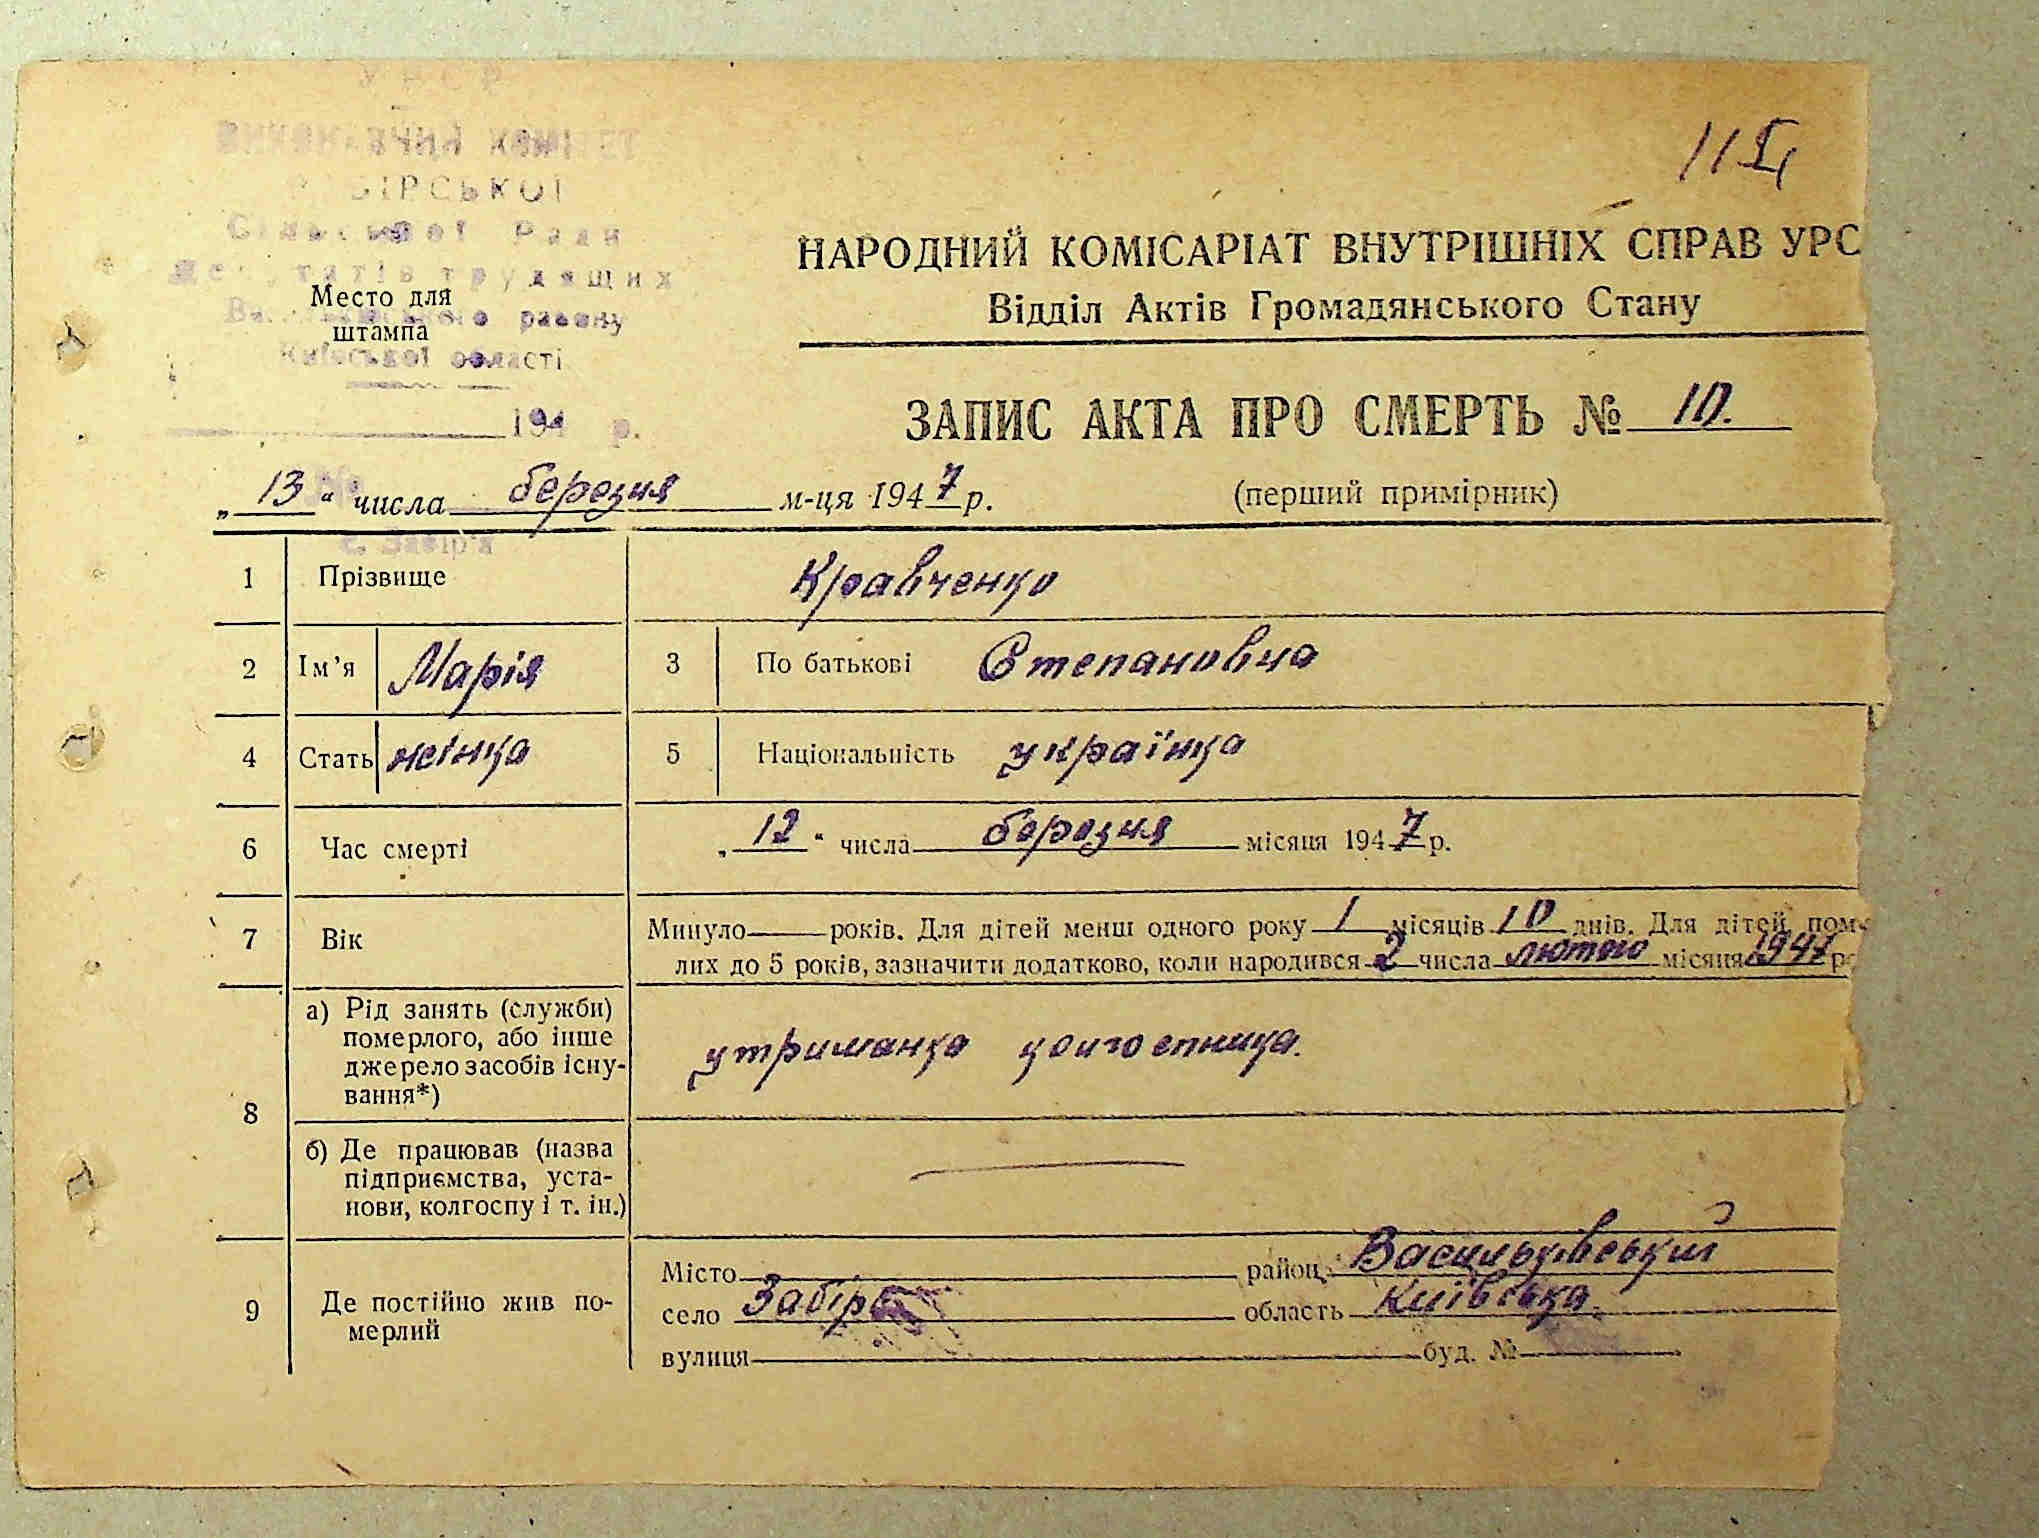 УРСР
ВИКОНАВЧИЙ КОМІТЕТ
ЗАБІРСЬКОЇ
Сільської Ради
Депутатів трудящих
Васильківського району
Київської області
Место для
штампа
194 р.
№
с. Забір'я
115
НАРОДНИЙ КОМІСАРІАТ ВНУТРІШНІХ СПРАВ УРС
Відділ Актів Громадянського Стану
ЗАПИС АКТА ПРО СМЕРТЬ № 10.
„13“ числа березня м-ця 1947 р.
(перший примірник)
1 Прізвище Кравченко
2 Ім’я Марія 3 По батькові Степановна
4 Стать жінка 5 Національність українка
6 Час смерті „12“ числа березня місяця 1947 р.
7 Вік Минуло років. Для дітей менш одного року 1 місяців 10 днів. Для дітей, поме
лих до 5 років, зазначити додатково, коли народився 2 числа лютого місяця 1947 р
8 а) Рід занять (служби)
померлого, або інше
джерело засобів існу-
вання*)
утриманка колгоспника.
б) Де працював (назва
підприємства, уста-
нови, колгоспу і т. ін.)
9 Де постійно жив по-
мерлий
Місто район Васильківський
село Забіря область Київська.
вулиця буд. №